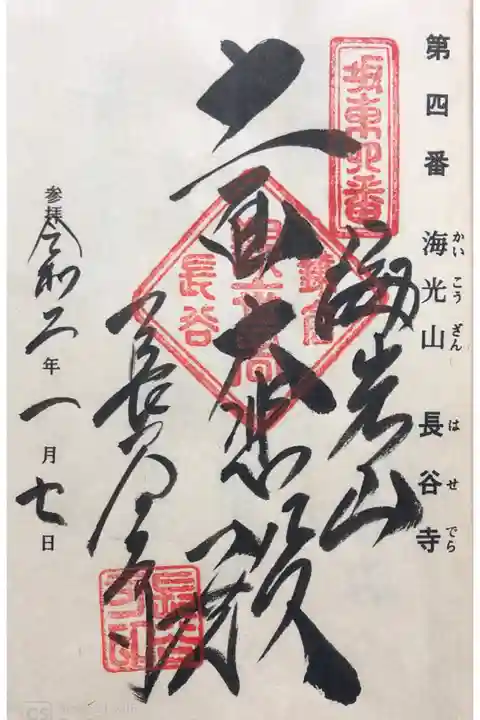 第四番 海光山 長谷寺
かいこうざん はせでら
坂東四番
海光山
十一面大悲殿
長谷寺
参拝 令和二年一月七日
長谷